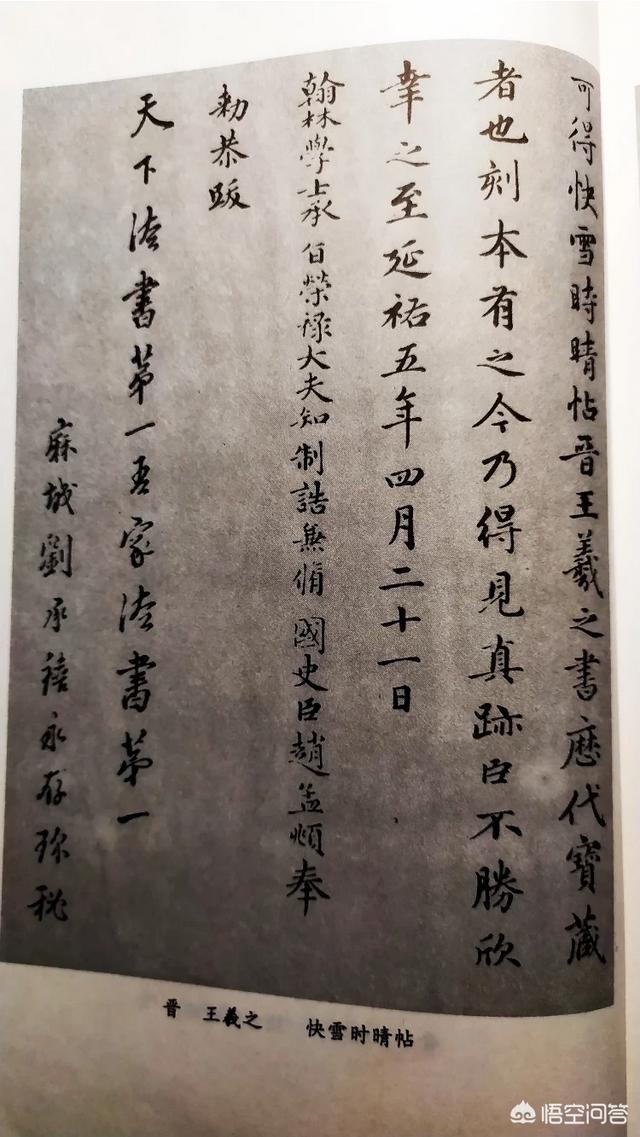 可得快雪時晴帖晋王羲之書歷代寶藏
者也刻本有之今乃得見真跡臣不勝欣
幸之至延祐五年四月二十一日
翰林學士承旨榮祿大夫知制誥兼脩國史臣趙孟頫奉
勑恭跋
天下法書第一吾家法書第一
麻城劉承禧永存珎秘
晋 王羲之 快雪时晴帖
悟空问答